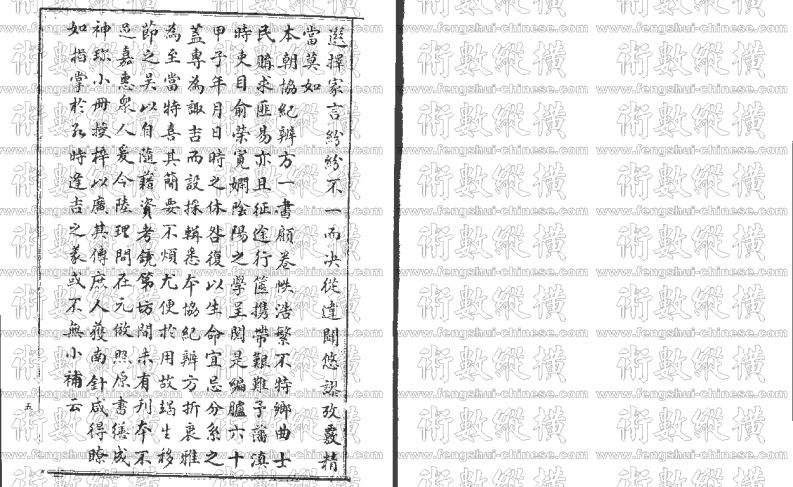 選擇家言紛紛不一而決從違聞悠謬攷覈精
當莫如
本朝協紀辨方一書顧卷帙浩繁不特鄉曲士
民購求匪易亦且征途行篋攜帶艱難予藩滇
時吏目俞榮寬嫻陰陽之學呈閱是編臚六十
甲子年月日時之休咎復以生命宜忌分系之
蓋專為諏吉而設採輯悉本協紀辨方折衷雅
為至當特喜其簡要不煩尤便於用故瑞生移
節之吳以自隨藉資考鏡第坊間未有刊本不
忍嘉惠眾人爰令陸理問在元倣照原書繕成
神珍小冊授梓以廣其傳庶人獲南針咸得瞭
如指掌於永時逢吉之義或不無小補云
五
術數縱橫
www.fengshui-chinese.com